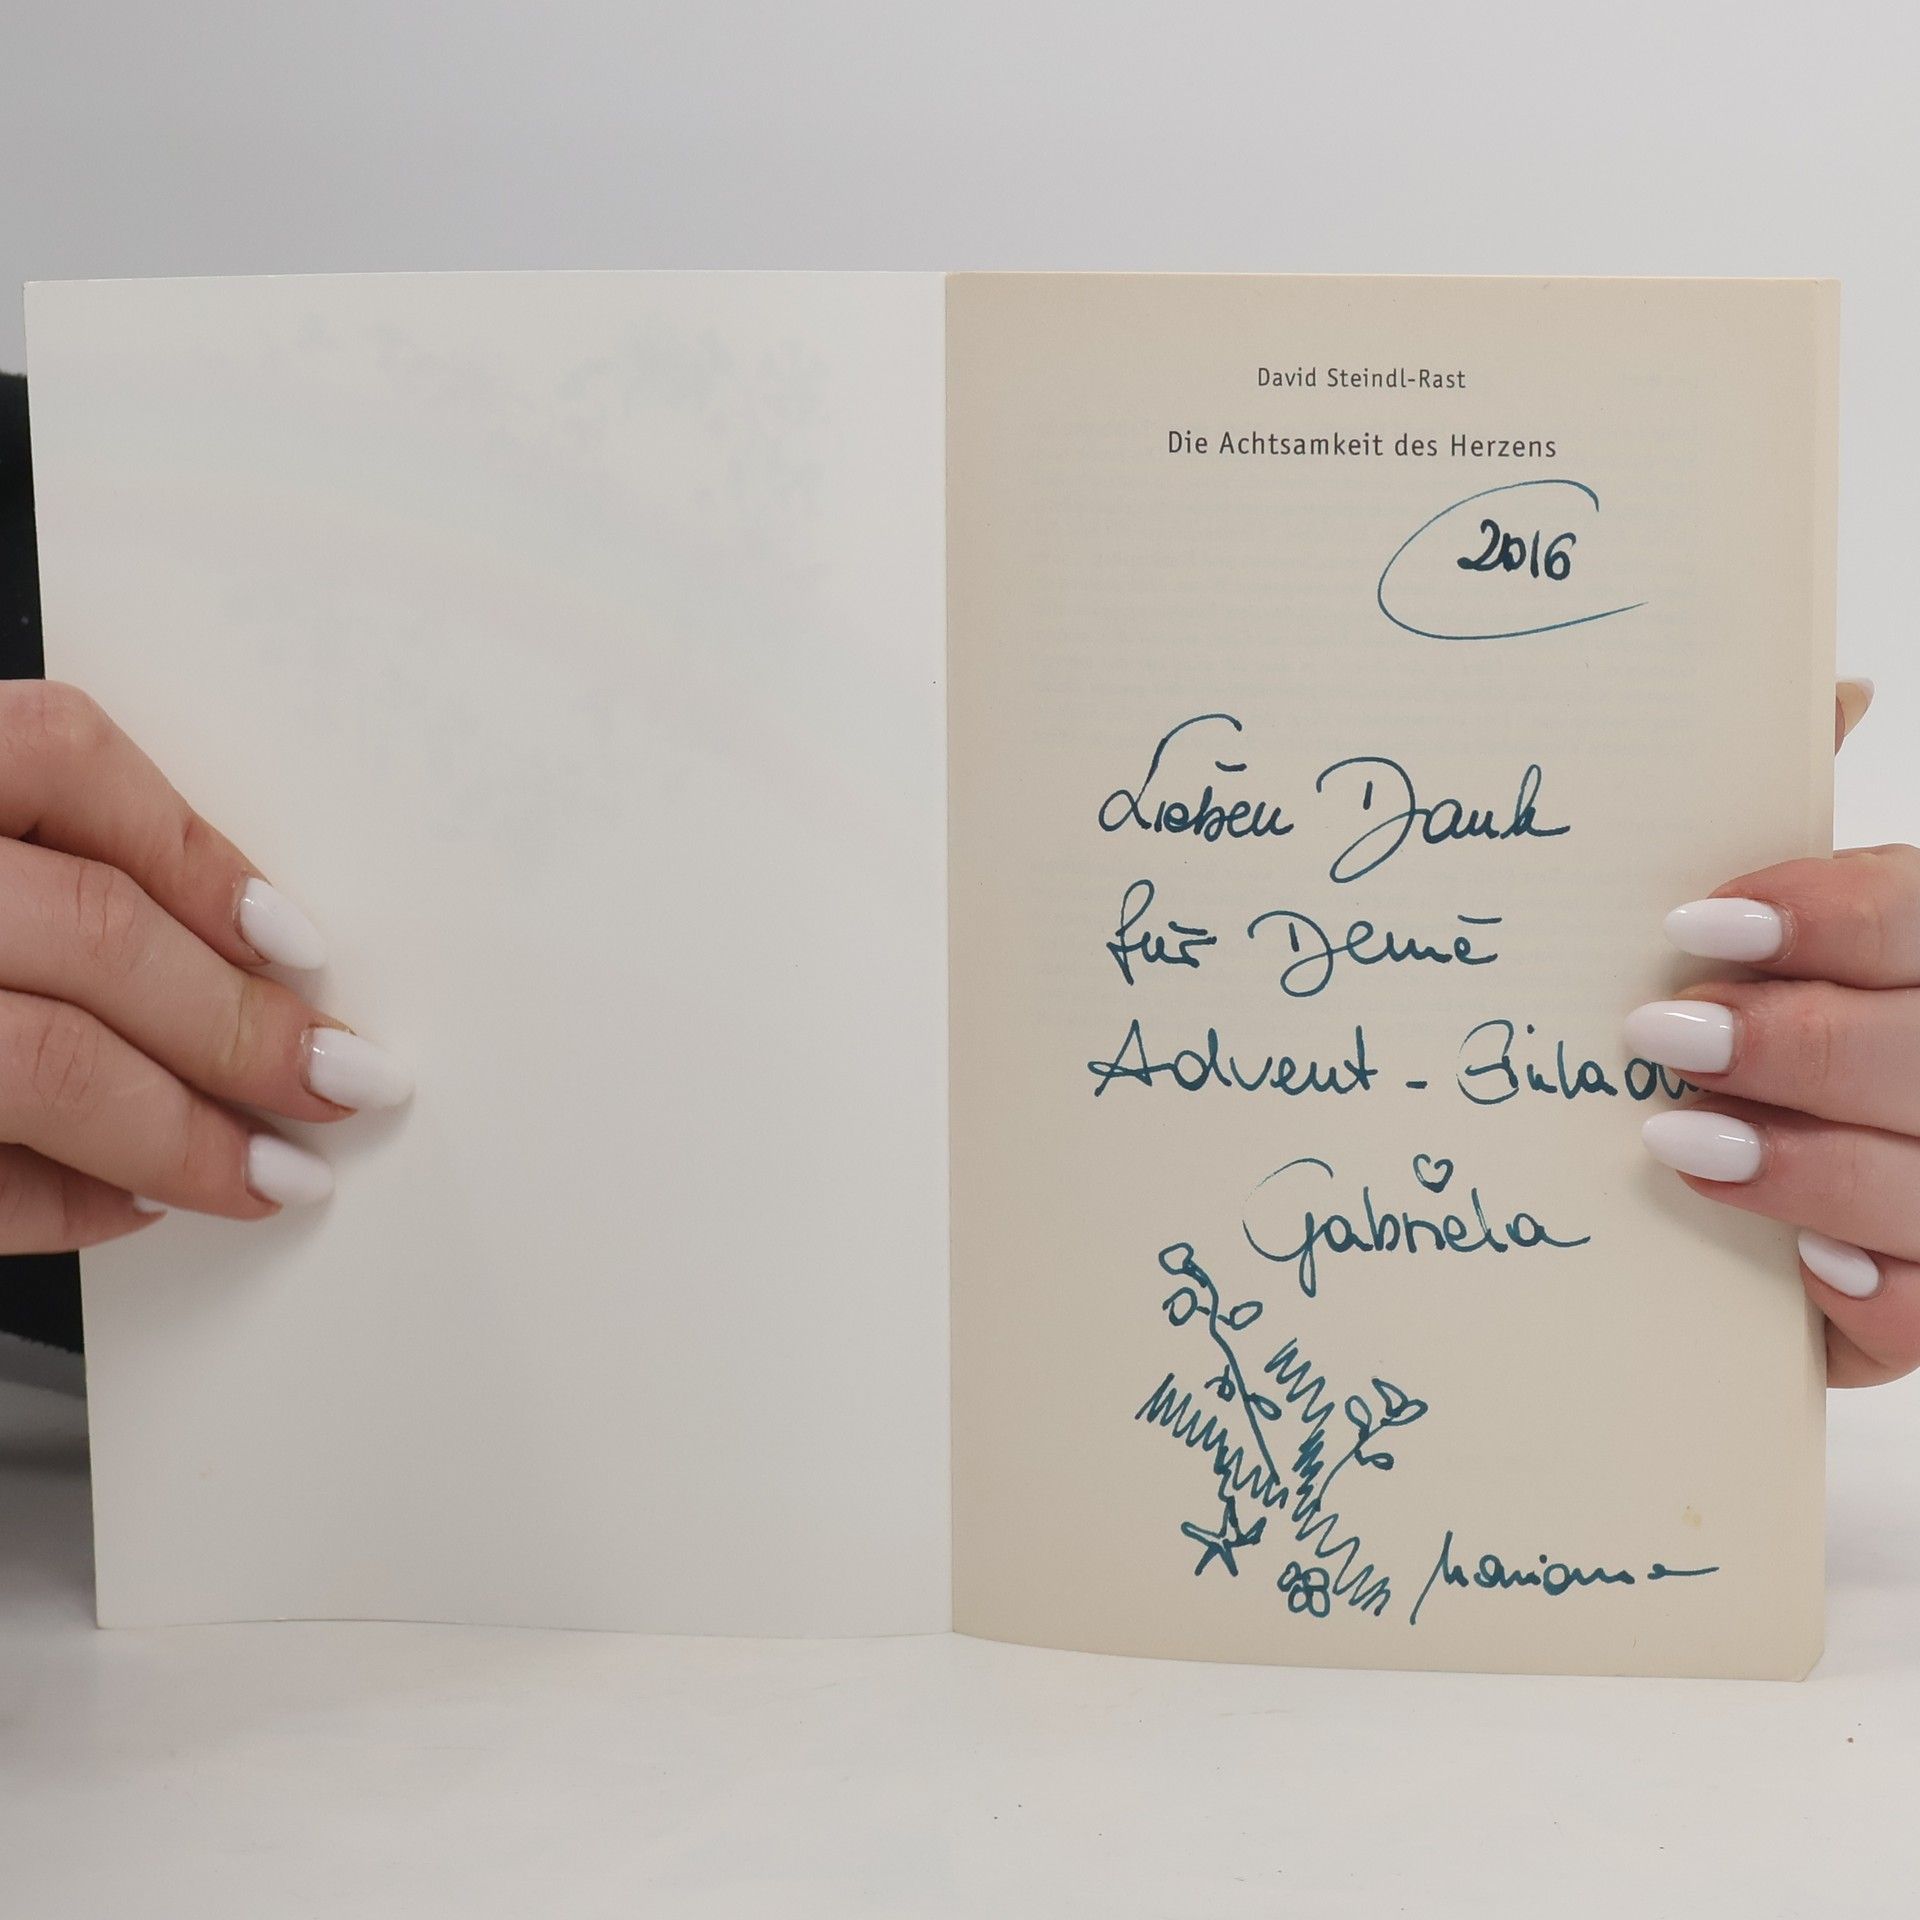 David Steindl-Rast
Die Achtsamkeit des Herzens
2016
Lieben Dank
für Deine
Advent - Einlad
Gabriela
Marianne